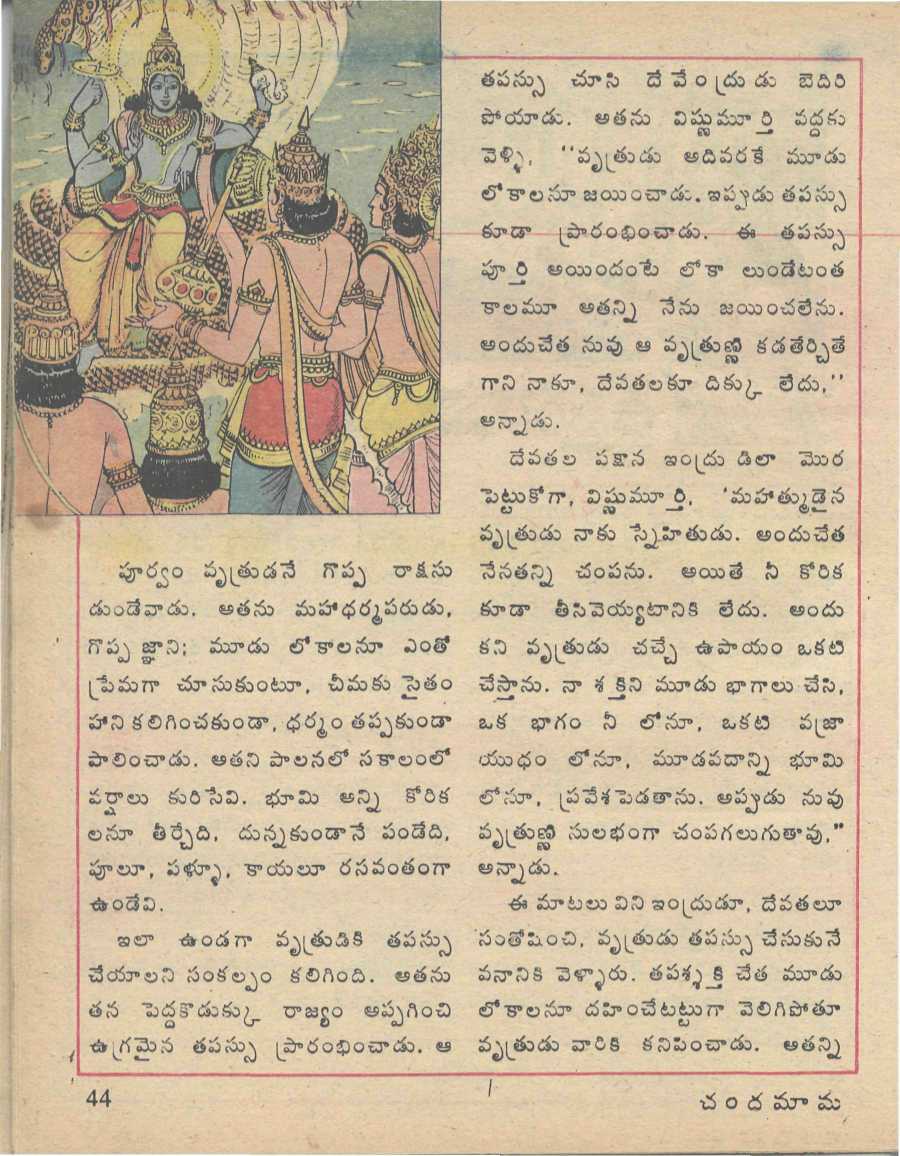 పూర్వం వృత్రుడనే గొప్ప రాక్షసు
డుండేవాడు. అతను మహాధర్మపరుడు,
గొప్ప జ్ఞాని; మూడు లోకాలనూ ఎంతో
ప్రేమగా చూసుకుంటూ, చీమకు సైతం
హాని కలిగించకుండా, ధర్మం తప్పకుండా
పాలించాడు. అతని పాలనలో సకాలంలో
వర్షాలు కురిసేవి. భూమి అన్ని కోరిక
లనూ తీర్చేది, దున్నకుండానే పండేది,
పూలూ, పళ్ళూ, కాయలూ రసవంతంగా
ఉండేవి.
ఇలా ఉండగా వృత్రుడికి తపస్సు
చేయాలని సంకల్పం కలిగింది. అతను
తన పెద్దకొడుక్కు రాజ్యం అప్పగించి
ఉగ్రమైన తపస్సు ప్రారంభించాడు. ఆ
తపస్సు చూసి దేవేంద్రుడు బెదిరి
పోయాడు. అతను విష్ణుమూర్తి వద్దకు
వెళ్ళి, ''వృత్రుడు అదివరకే మూడు
లోకాలనూ జయించాడు. ఇప్పుడు తపస్సు
కూడా ప్రారంభించాడు. ఈ తపస్సు
పూర్తి అయిందంటే లోకా లుండేటంత
కాలమూ అతన్ని నేను జయించలేను.
అందుచేత నువు ఆ వృత్రుణ్ణి కడతేర్చితే
గాని నాకూ, దేవతలకూ దిక్కు లేదు,''
అన్నాడు.
దేవతల పక్షాన ఇంద్రు డిలా మొర
పెట్టుకోగా, విష్ణుమూర్తి, 'మహాత్ముడైన
వృత్రుడు నాకు స్నేహితుడు. అందుచేత
నేనతన్ని చంపను. అయితే నీ కోరిక
కూడా తీసివెయ్యటానికి లేదు. అందు
కని వృత్రుడు చచ్చే ఉపాయం ఒకటి
చేస్తాను. నా శక్తిని మూడు భాగాలు చేసి,
ఒక భాగం నీ లోనూ, ఒకటి వజ్రా
యుధం లోనూ, మూడవదాన్ని భూమి
లోనూ, ప్రవేశ పెడతాను. అప్పుడు నువు
వృత్రుణ్ణి సులభంగా చంపగలుగుతావు,"
అన్నాడు.
ఈ మాటలు విని ఇంద్రుడూ, దేవతలూ
సంతోషించి, వృత్రుడు తపస్సు చేసుకునే
వనానికి వెళ్ళారు. తపశ్శక్తి చేత మూడు
లోకాలనూ దహించేటట్టుగా వెలిగిపోతూ
వృత్రుడు వారికి కనిపించాడు. అతన్ని
44
చందమామ